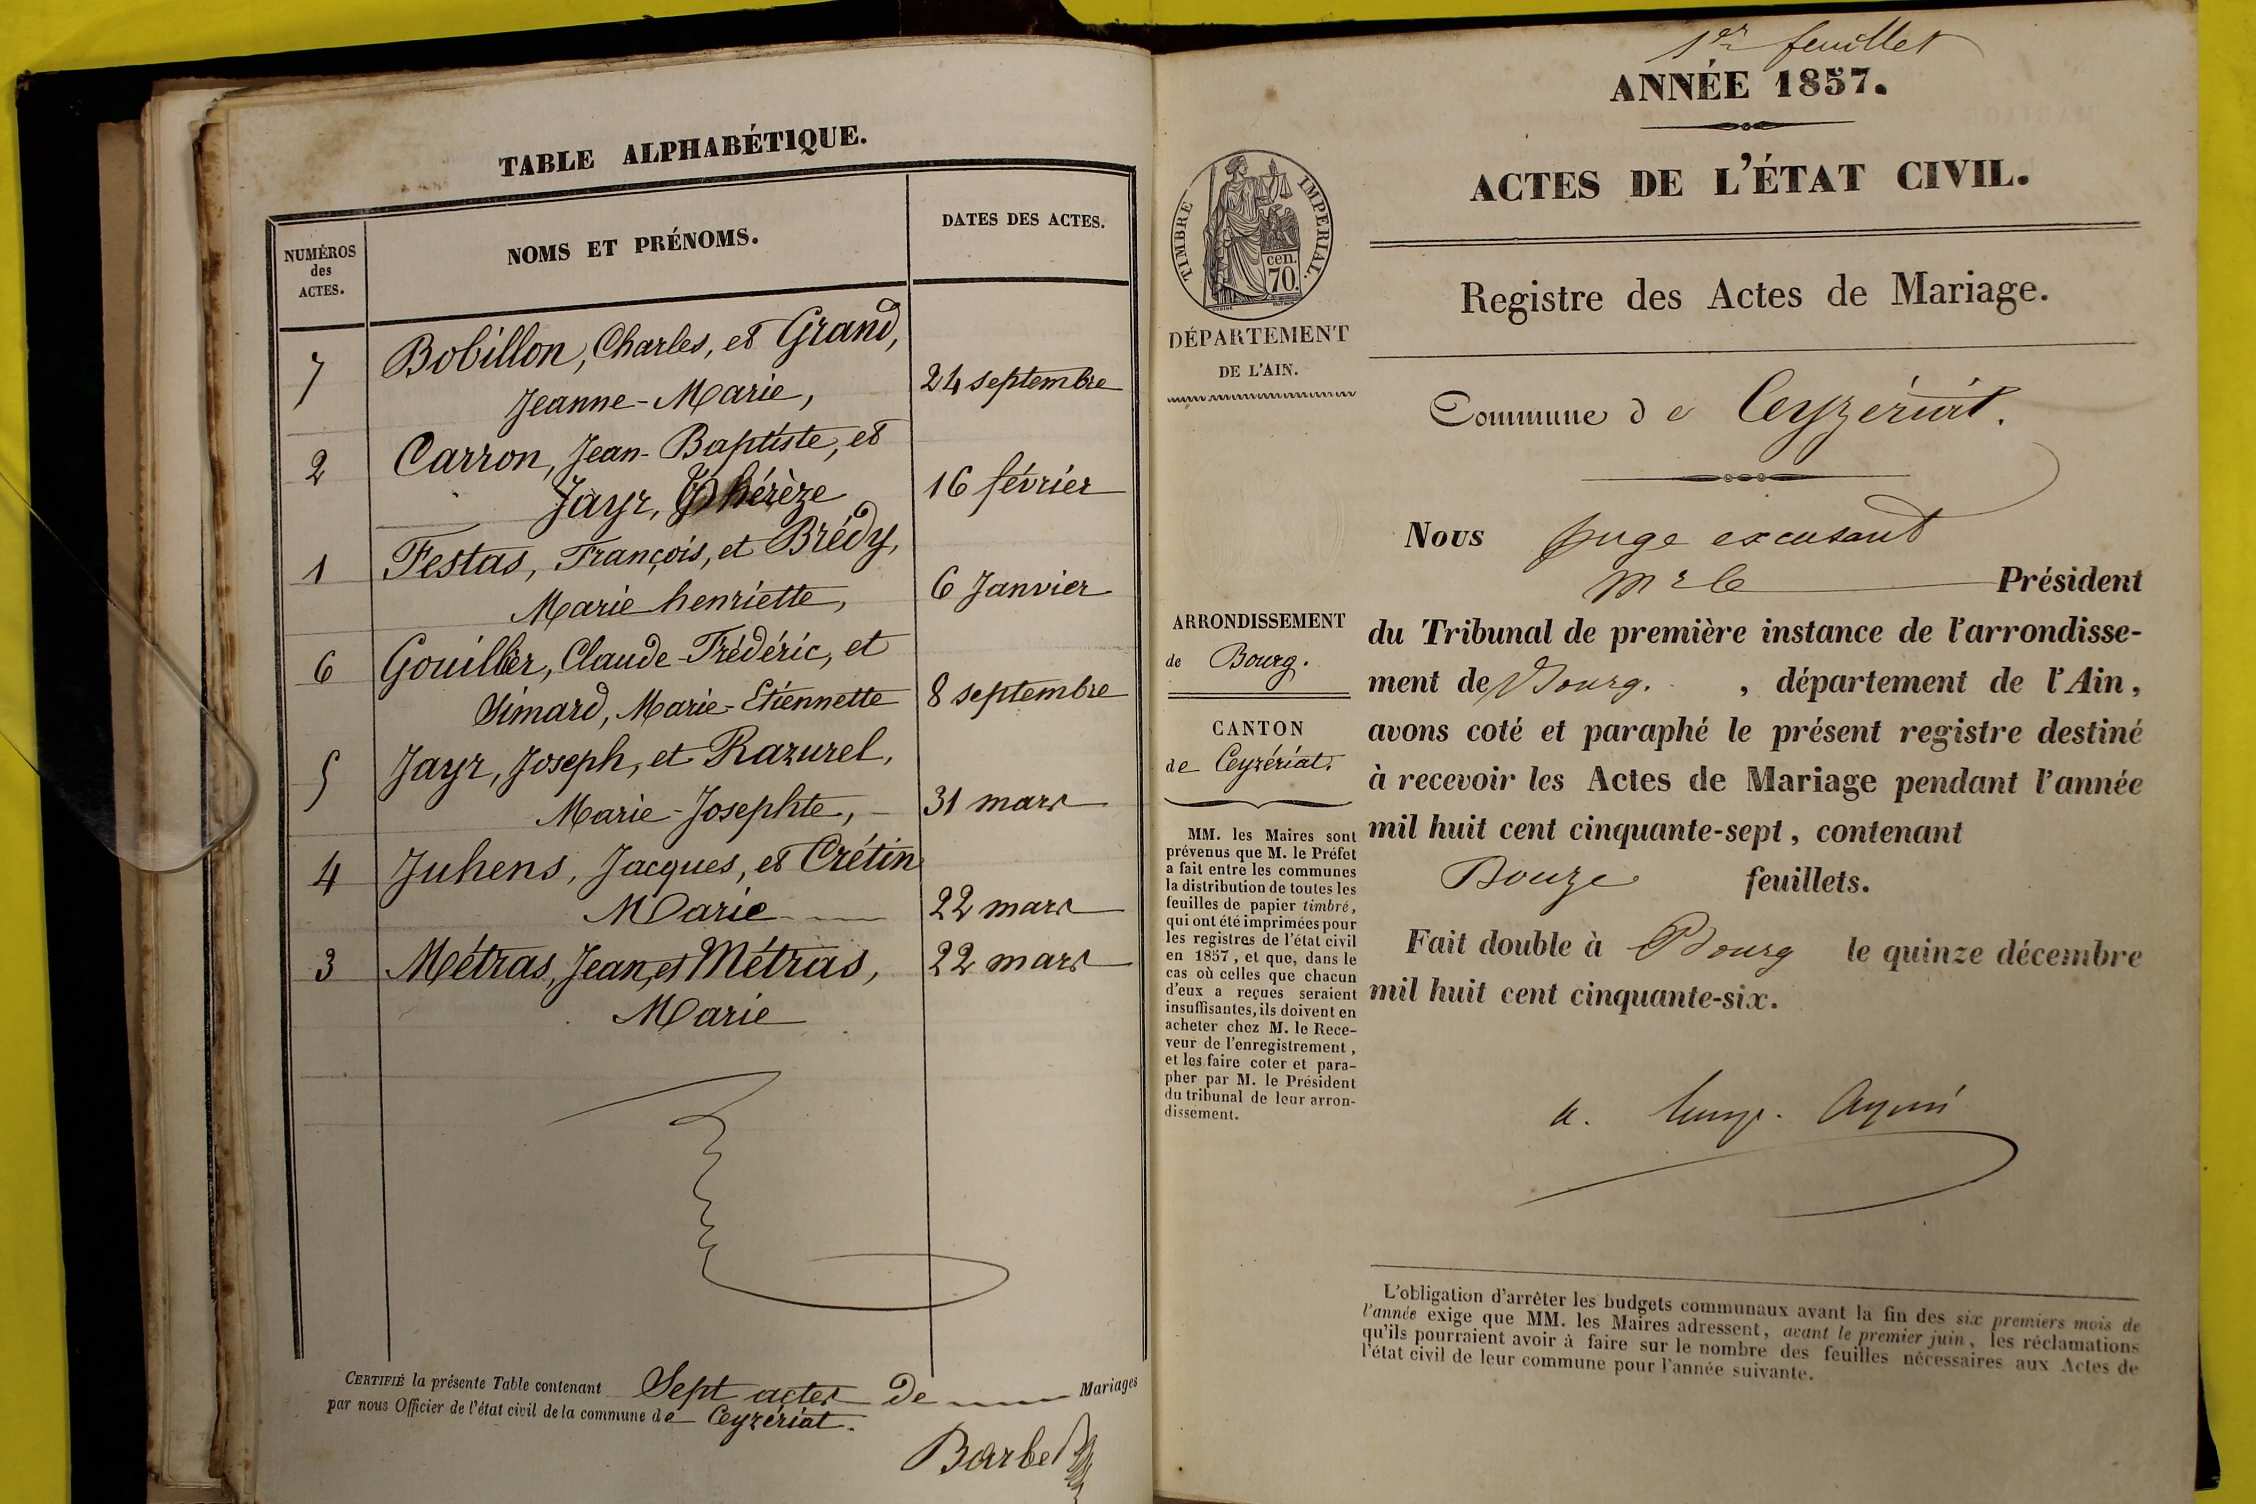 TABLE ALPHABÉTIQUE.
NUMÉROS
des
ACTES.
NOMS ET PRÉNOMS.
DATES DES ACTES.
7 Bobillon, Charles, et Grand,
Jeanne-Marie, 24 septembre
2 Carron, Jean-Baptiste, et
Jayr, Thérèze 16 février
1 Festas, François, et Brédy,
Marie henriette, 6 Janvier
6 Gouiller, Claude-Frédéric, et
Simard, Marie-Etiennette 8 septembre
5 Jayr, Joseph, et Razurel,
Marie-Josephte, 31 mars
4 Juhens, Jacques, et Crétin
Marie 22 mars
3 Métras, Jean, et Métras, 22 mars
Marie
CERTIFIÉ la présente Table contenant Sept actes de Mariages
par nous Officier de l'état civil de la commune de Ceyzériat.
Barbet
1er feuillet
ANNÉE 1857.
ACTES DE L'ÉTAT CIVIL.
Registre des Actes de Mariage.
TIMBRE IMPERIAL.
cen.
70.
DÉPARTEMENT
DE L'AIN.
Commune de Ceyzériat.
Nous Juge excusant
Mr le Président
du Tribunal de première instance de l'arrondisse-
ment de Bourg. , département de l'Ain,
avons coté et paraphé le présent registre destiné
à recevoir les Actes de Mariage pendant l'année
mil huit cent cinquante-sept, contenant
Douze feuillets.
Fait double à Bourg le quinze décembre
mil huit cent cinquante-six.
ARRONDISSEMENT
de Bourg.
CANTON
de Ceyzériat.
MM. les Maires sont
prévenus que M. le Préfet
a fait entre les communes
la distribution de toutes les
feuilles de papier timbré,
qui ont été imprimées pour
les registres de l'état civil
en 1857, et que, dans le
cas où celles que chacun
d'eux a reçues seraient
insuffisantes, ils doivent en
acheter chez M. le Rece-
veur de l'enregistrement,
et les faire coter et para-
pher par M. le Président
du tribunal de leur arron-
dissement.
L'obligation d'arrêter les budgets communaux avant la fin des six premiers mois de
l'année exige que MM. les Maires adressent, avant le premier juin, les réclamations
qu'ils pourraient avoir à faire sur le nombre des feuilles nécessaires aux Actes de
l'état civil de leur commune pour l'année suivante.